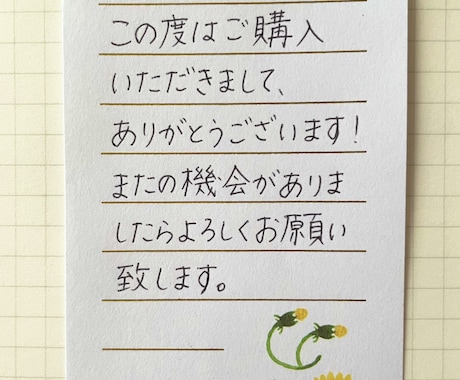 この度はご購入
いただきまして、
ありがとうございます！
またの機会がありま
したらよろしくお願い
致します。